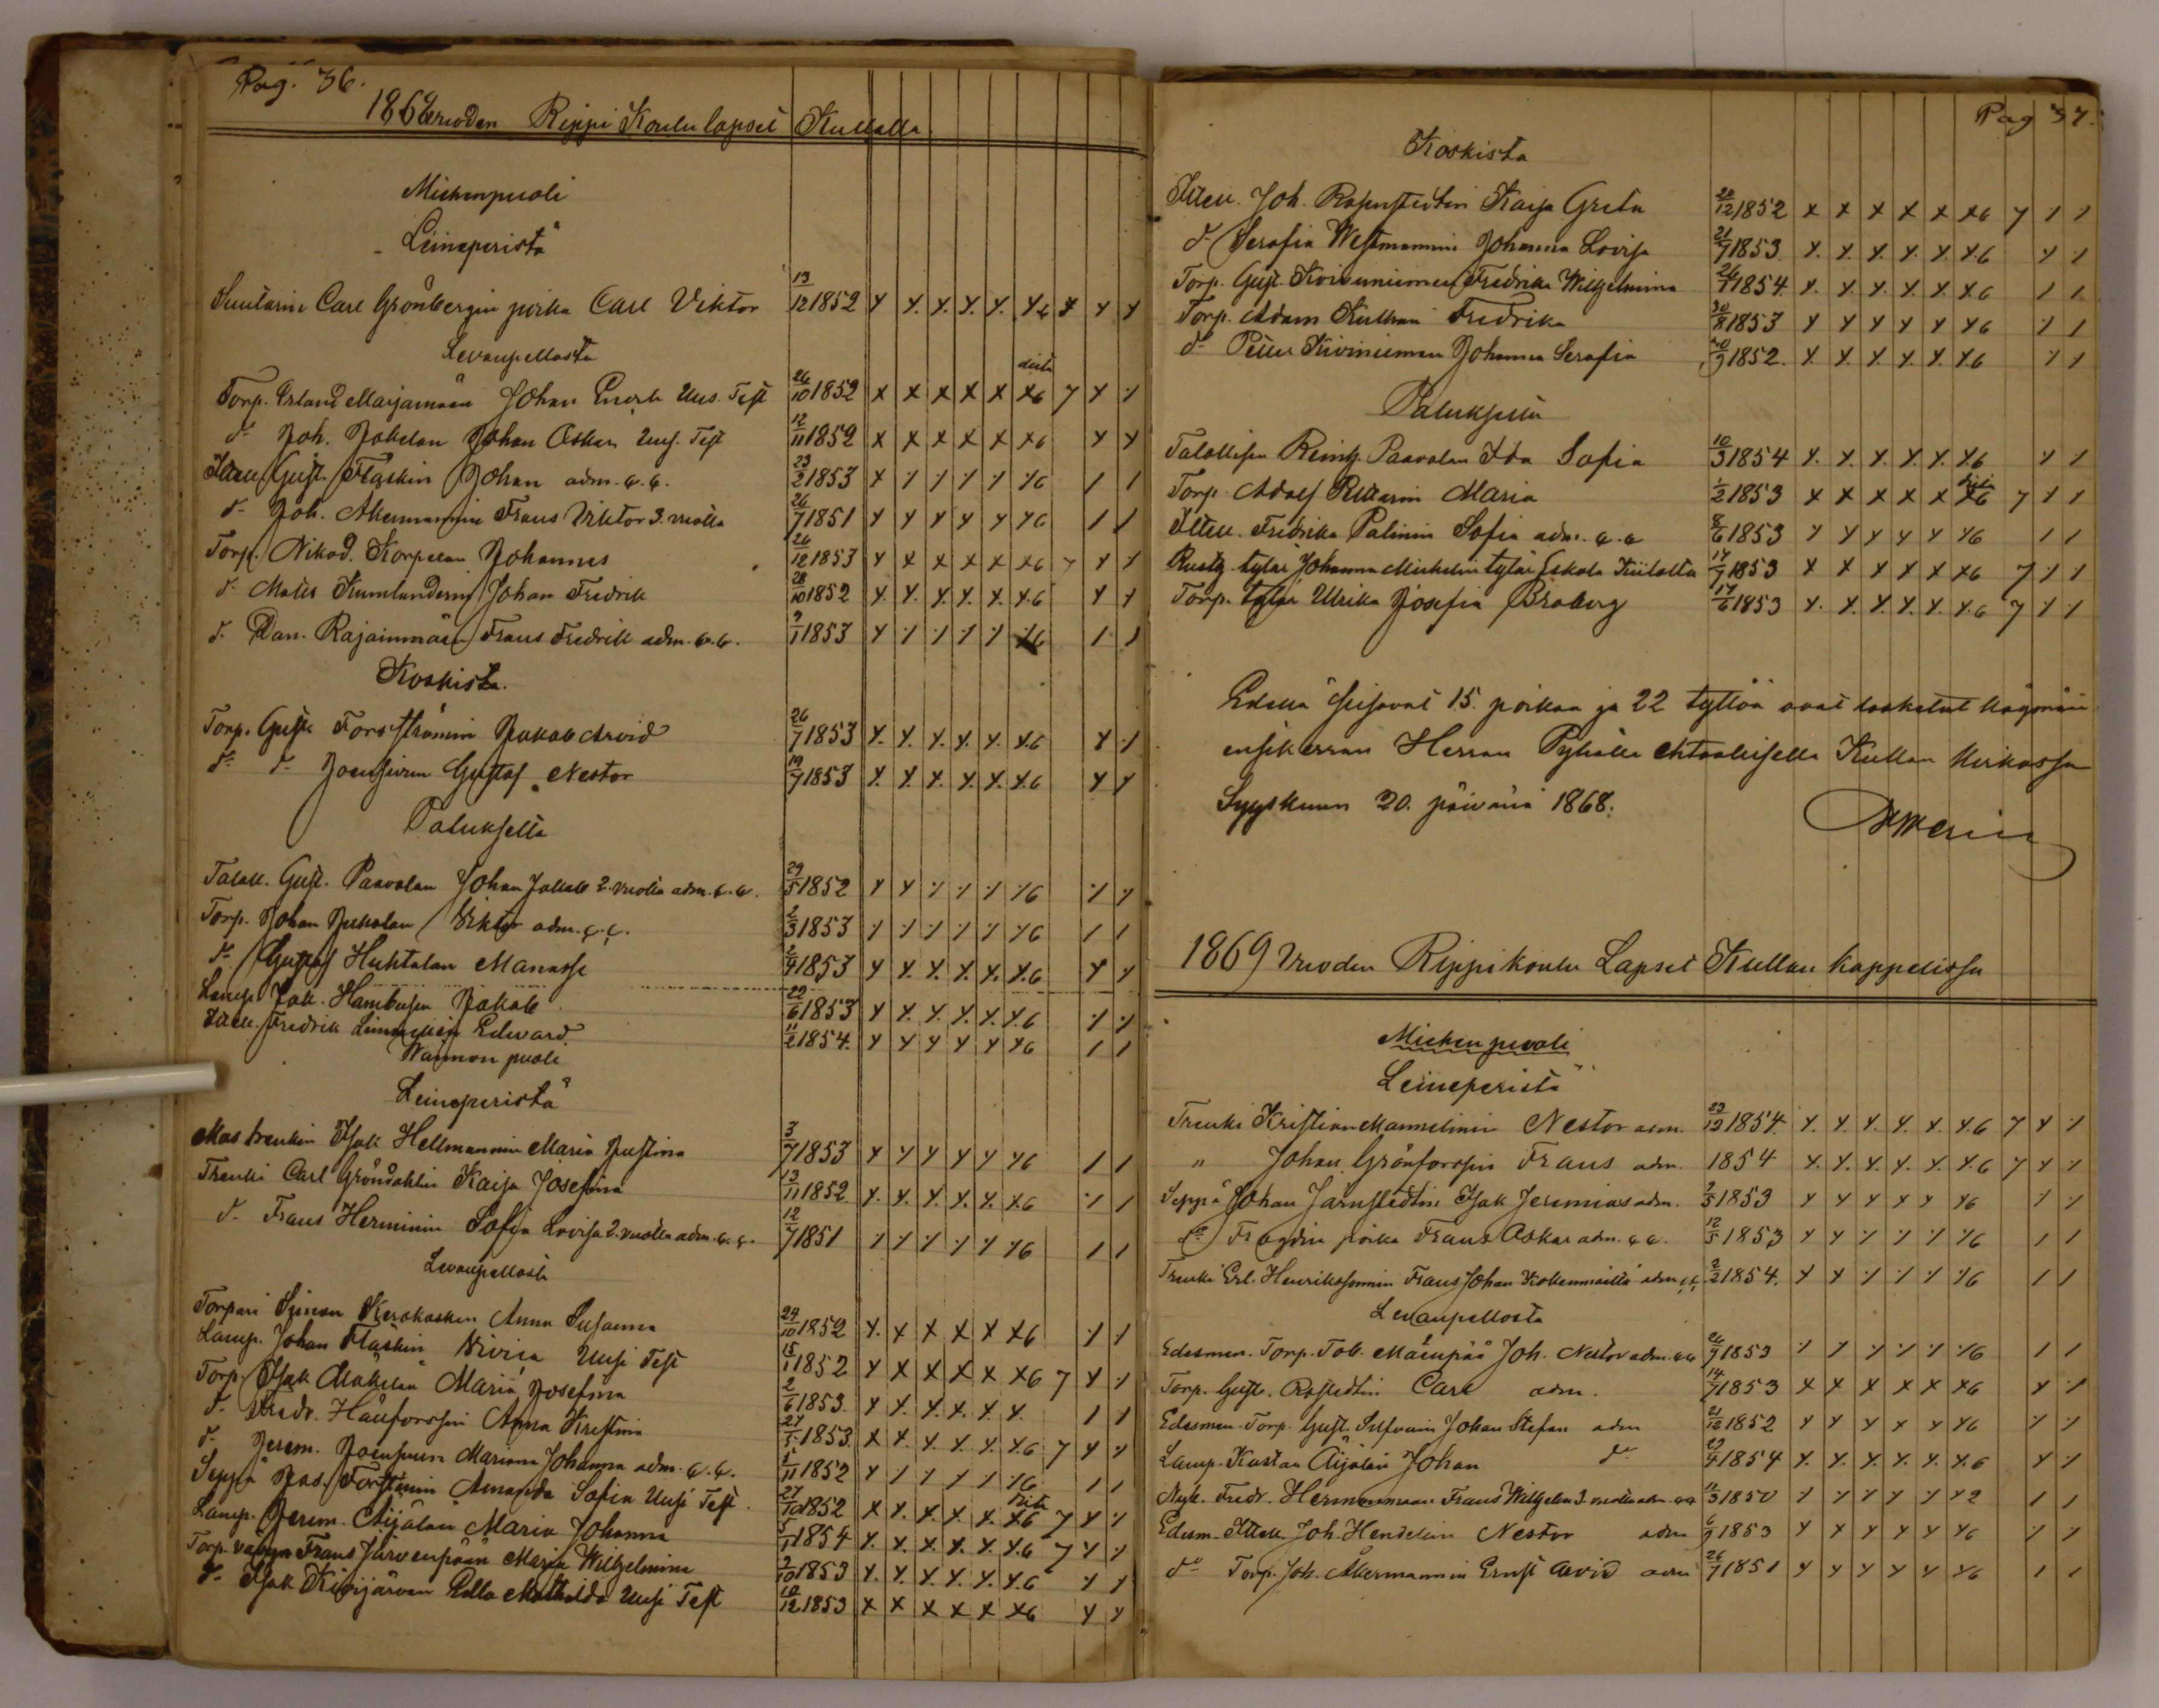 Pag. 36.
1868 vuoden Rippi Koulu lapset Kullalla
Miehenpuoli
Leineperistä
Carl Grönbergin poika Carl Viktor 13/12 1852 x x x x x x6 7 x x
Levanpellosta
Torp. Erland Marjamään Johan Enok Uus. Test 26/10 1852 x x x x x x6 7 x x
d:o Joh. Jokelan Johan Oskar Uus. Test 12/11 1852 x x x x x x6 x x
Gust. Flaskin Johan adm. c.c. 23/2 1853 x / / / / /6 / /
d:o Joh. Åkermannin Frans Viktor 3. vuotta 26/7 1851 x x x x x x6 / /
Torp. Nikod. Korpelan Johannes 26/12 1853 x x x x x x6 7 x x
d:o Matts Kumlanderin Johan Fredrik 28/10 1852 x x x x x x6 x x
d:o Dan. Rajainmäen Frans Fredrik adm. c.c. 9/1 1853 x / / / / /6 / /
Koskista.
Torp. Gust. Forsströmin Jakob Arvid 26/7 1853 x x x x x x6 x x
d:o d:o Joensuun Gustaf Nestor 19/7 1853 x x x x x x6 x x
Paluksesta
Talall. Gust. Paavolan Johan Jakob 2. vuotta adm. c.c. 29/5 1852 x x / / / /6 / /
Torp. Johan Jukolan Viktor adm. c.c. 2/3 1853 / / / / / /6 / /
d:o Gustaf Huhtalan Manasse 2/4 1853 x x x x x x6 x x
Lamp. Jak. Jakob 22/6 1853 x x x x x x6 / /
Itell. Fredrik Edvard 11/2 1854. x x x x x x6 / /
Waimon puoli
Leineperistä
Mas. trenkin Isak Hellmannin Maria Justina 3/7 1853 x x x x x x6 / /
Trenki Carl Gröndahlin Kaisa Josefina 13/11 1852 x x x x x x6 / /
d:o Frans Herminin Sofia Lovisa 2. vuotta adm. c.c. 12/7 1851 / / / / / /6 / /
Levanpellosta
Torpari Simon Keskokosken Anna Susanna 24/10 1852 x x x x x x6 / /
Lamp. Johan Flaskin Viviia Uusi Test 15/1 1852 x x x x x x6 7 x x
Torp. Isak Mäkelän Maria Josefina 2/6 1853 x x x x x x / /
d:o Fredr. Hänforssin Anna Kristina 27/5 1853 x x x x x x6 7 x x
d:o Jerem. Joensuun Mariana Johanna adm. c.c. 5/11 1852 x / / / / /6 / /
Seppä Jos. Forsströmin Amanda Sofia Uusi Test. 27/10 1852 x x x x x x6 7 x x
Lamp. Jerem. Äijälän Maria Johanna 5/1 1854 x x x x x x6 7 x x
Torp. vävyn Frans Järvenpään Maria Wilhelmina 2/10 1853 x x x x x x6 / /
d:o Isak Kivijärven Edla Mathilda Uusi Test 10/12 1853 x x x x x x6 x x
Pag 37.
Koskista
Itell. Joh. Rosenstedtin Kaisa Greta 28/12 1852 x x x x x x6 7 / /
d:o Serafia Westmannin Johanna Lovisa 21/7 1853. x x x x x x6 / /
Torp. Gust. Koivuniemen Fredrika Wilhelmina 24/1 1854. x x x x x x6 / /
Torp. Adam Kullaan Fredrika 30/8 1853 x x x x x x6 / /
d:o Petter Kiviniemen Johanna Serafia 20/9 1852. x x x x x x6 / /
Paluksesta
Talollisen Reinh. Paavolan Ida Sofia 10/3 1854 x x x x x x6 x /
Torp. Adolf Maria 1/2 1853 x x x x x x6 7 x /
Itell. Fredrika Palinin Sofia adm. c.c 8/6 1853 x x x x x x6 / /
Rustg. tytär Johanna Mickelin tytär Eskola Kiilolta 14/7 1853 x x x x x x6 7 / /
Torp. tytär Ulrika Josefia Broberg 17/6 1853 x x x x x x6 7 x /
Edellä seisovat 15. poikaa ja 22 tyttöä ovat lasketut käymään
ensikerran Herran Pyhällä ehtoollisella Kullan kirkossa
Syyskuun 20. päivänä 1868.
1869 Vuoden Rippikoulu Lapset Kullan kappelissa
Miehen puoli
Leineperistä
Trenki Kristian Mannelinin Nestor adm. 23/12 1854. x x x x x x6 7 x /
" Johan Grönforssin Frans adm. 1854 x x x x x x6 7 x /
Seppä Johan Järnstedtin Isak Jeremias adm. 2/5 1853 x x x x x x6 / /
d:o poika Frans Oskar adm. c.c. 12/5 1853 x x / / / /6 / /
Trenki Erl. Henrikssonnin Frans Johan Kokemäeltä adm. c.c. 2/2 1854. x x / / / /6 / /
Levanpellosta
Edesmen. Torp. Tob. Mäenpää Joh. Nestor adm. c.c 26/7 1853 / / / / / /6 / /
Torp. Gust. Rostedtin Carl adm. 14/7 1853 x x x x x x6 x /
Edesmen. Torp. Gust. Johan Stefan adm 21/12 1852 x x x x x x6 / /
Lamp. Kustaa Äijälän Johan d:o 29/4 1854 x x x x x x6 x /
Fredr. Hermonmaan Frans Wilhelm 3. vuotta adm. c.c 11/3 1850 / / / / / x2 / /
Edesm. Itell. Joh. Hendelin Nestor adm 6/9 1853 x x x x x x6 / /
d:o Torp. Joh. Åkermannin Ernst Arvid adm 26/7 1851 x x x x x x6 / /